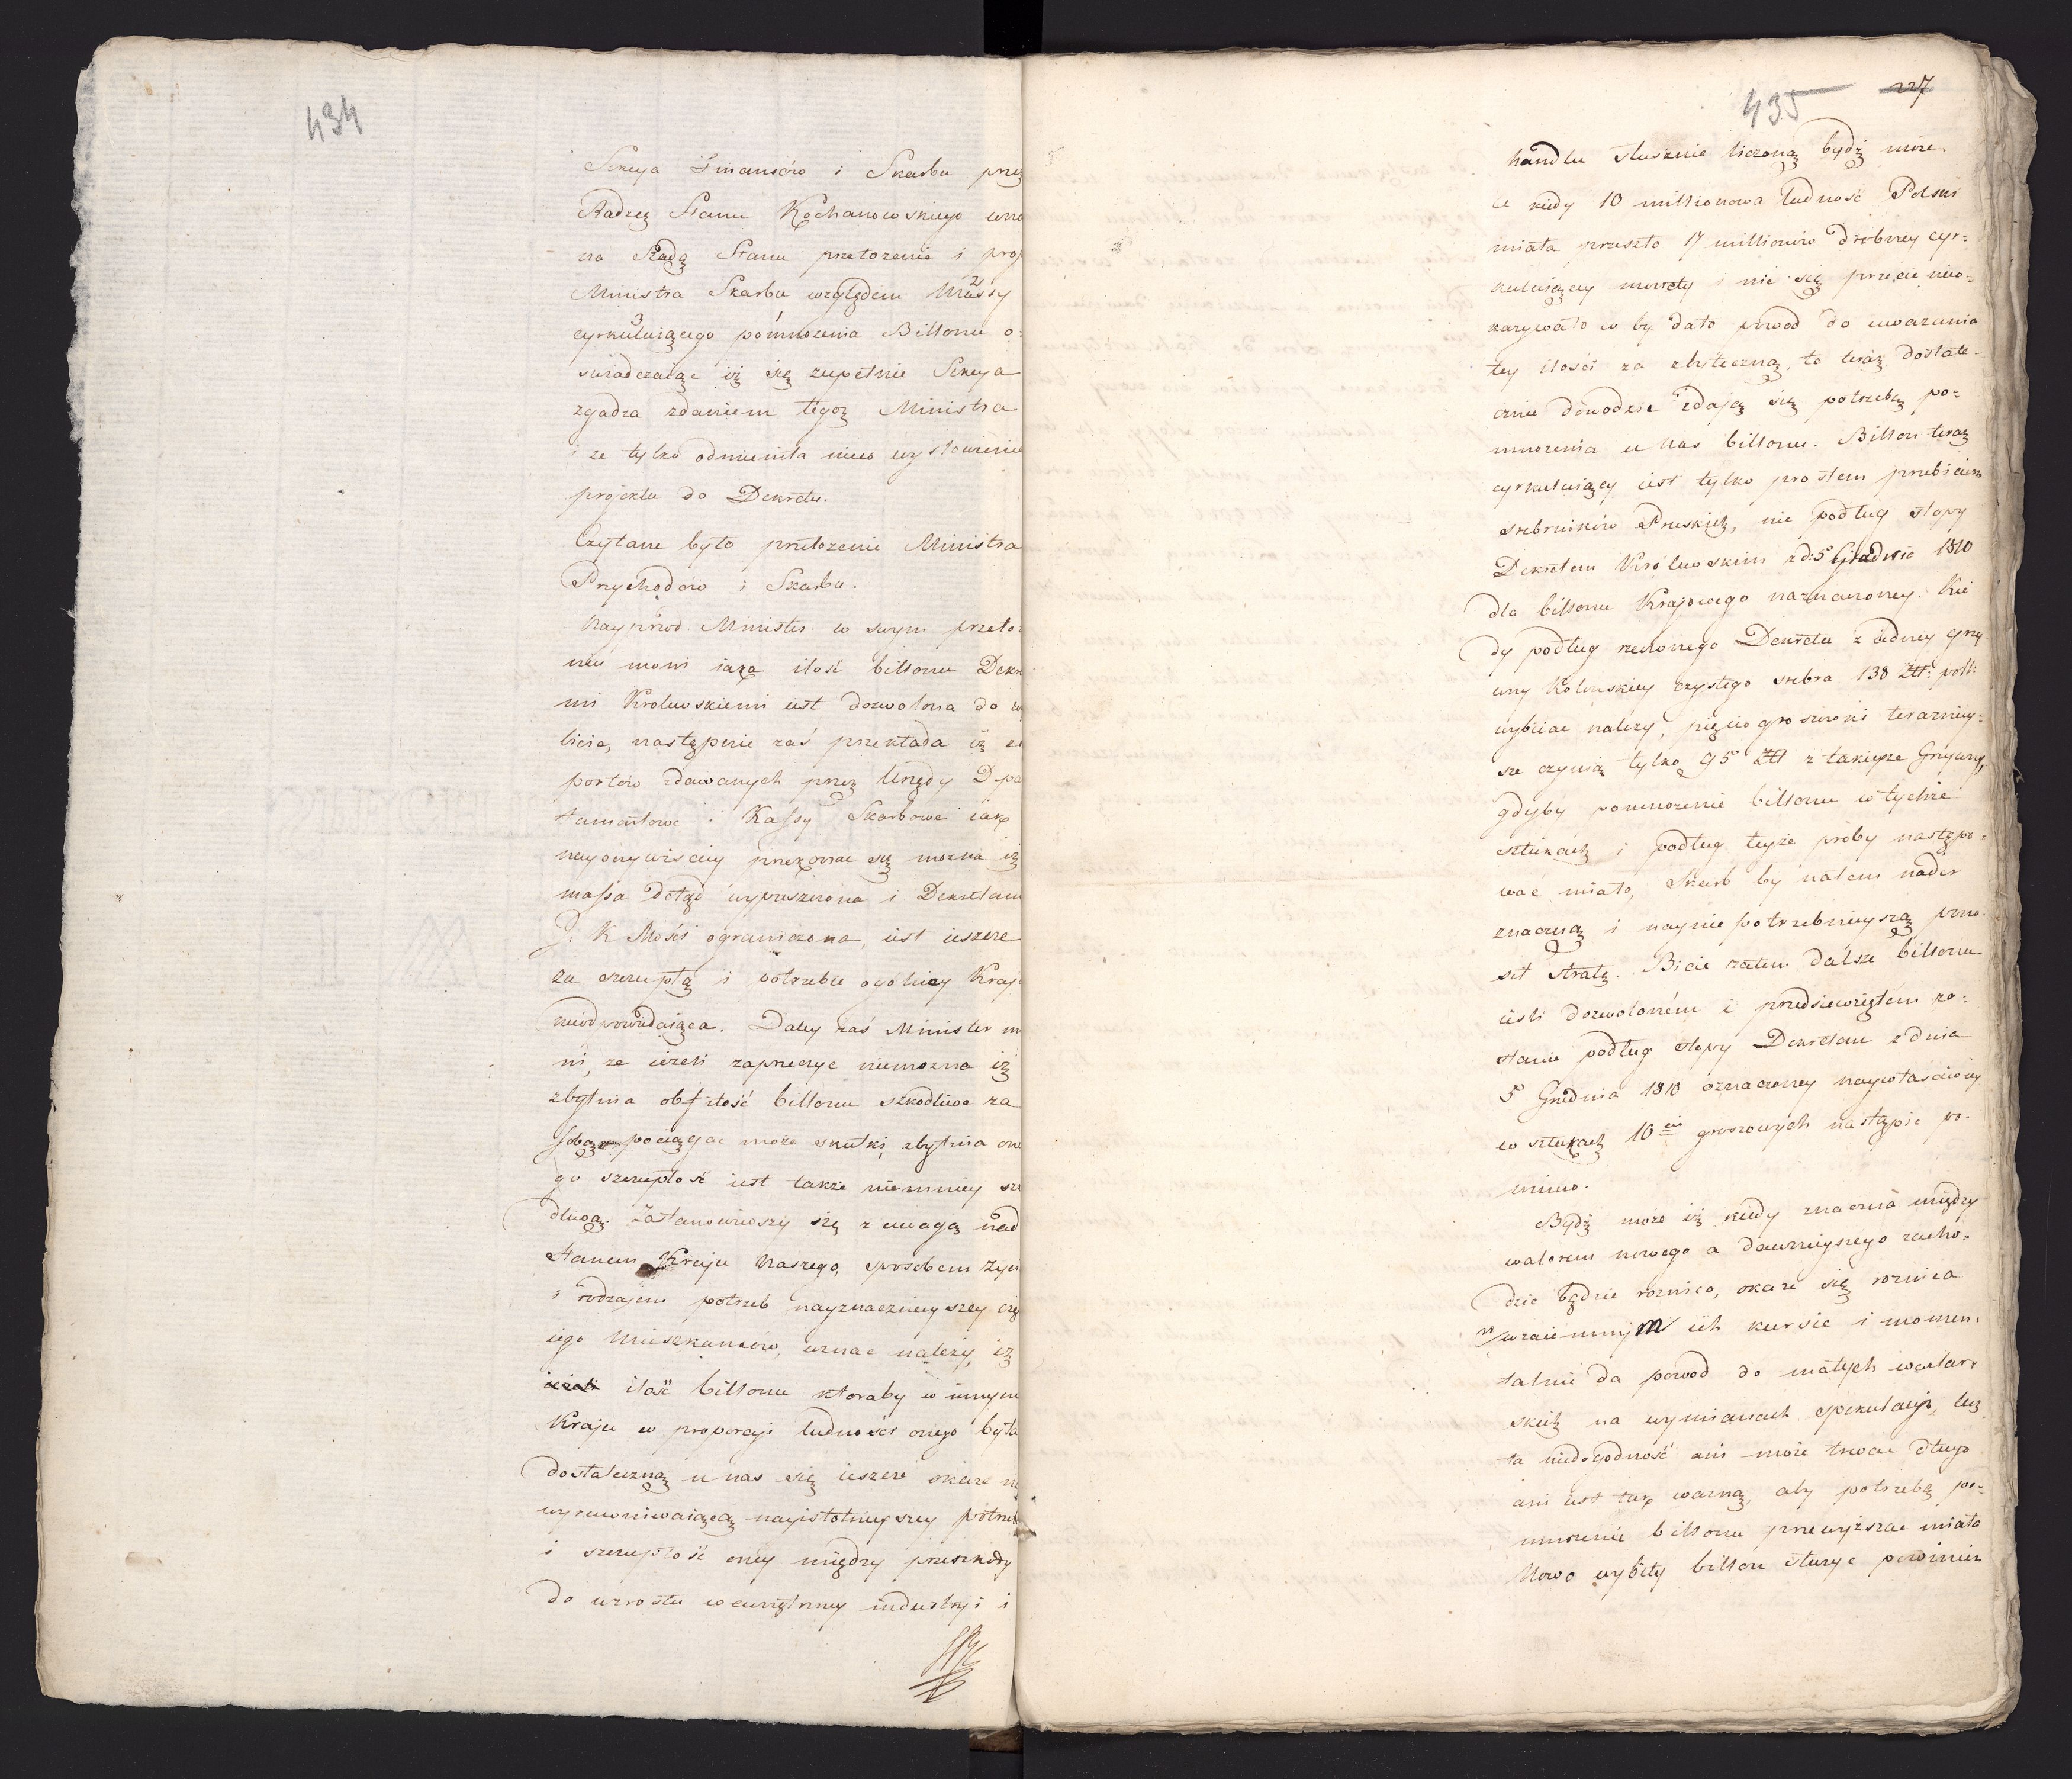 434
Sekcya Finansów i Skarbu prze
Radzcę Stanu Kochanowskiego
na Radę Stanu przełozenie i proj
Ministra Skarbu względem Massy 2
cyrkuluiącego 3 pomnozenia Billonu o=
swiadczaiąc iż się zupełnie Sekcya
zgadza zdaniem tegoz Ministra
i ze tylko odmieniła nieco wysłowienie
projektu do Dekretu.
Czytane było przełozenie Ministra
Przychodów i Skarbu.
Nayprzod Minister w swym przeło=
niu mowi iaka ilość billonu Dekre
mi Krolewskiemi iest dozwolona do w
bicia, następnie zaś przekłada iż z
portów zdawanych przez Urzędy Depa
tamentowe i Kassy Skarbowe iak
nayoczywisciey przekonac się mozna iż
massa dotąd wypuszczona i Dekretam
J. K Mości ograniczona, iest ieszcze
za szczupłą i potrzebie ogólney Kraj
nieodpowiadaiąca. Daley zaś Minister m
ni, ze iezeli zaprzeczyc niemozna iż
zbytnia obfitość billonu szkodliwe za
sobą pociągac może skutki, zbytnia one
go szczupłość iest także niemniey szk
dliwą. Zastanowiwszy się z uwagą nad
stanem Kraju Naszego, sposobem życi
i rodzajem potrzeb nayznacznieyszey czę
iego Mieszkancow, uznac należy, iż
iezeli ilość billonu ktoraby w innym
Kraju w proporcyi ludności onego była
dostateczną u nas się ieszcze okaze n
wyrownywaiącą nayistotnieyszey potrze
i szczupłość oney między przeszkody
do wzrostu wewnętrzney industryi i
435 227
handlu słusznie liczoną bydź może.
A kiedy 10 millionowa ludność Polski
miała przeszło 17 millionów drobney cyr=
kuluiącey monety i nic się przecie nieo=
kazywało co by dało powod do uwazania
tey ilości za zbyteczną, to teraz dostate=
cznie dowodzic zdają się potrzebę po=
mnozenia u nas billonu. Billon teraz
cyrkuluiący iest tylko prostem przebiciem
srebrników Pruskich, nie podług stopy
Dekretem Królewskim z d: 5º Grudnia 1810
dla billonu Krajowego naznaczoney. Kie
dy podług rzeczonego Dekretu z iedney grzy
wny Kolonskiey czystego srebra 138 Złł: poll:
wybiiac nalezy, pięciogroszowki terazniey=
sze czynią tylko 95 Złł z takieyze Grzywny,
gdyby pomnozenie billonu w tychze
sztukach i podług teyże proby następo=
wać miało, Skarb by zatem nader
znaczną i nayniepotrzebnieyszą pono=
sił stratę. Bicie zatem dalsze billonu
iesli dozwolonem i przedsiewziętem zo=
stanie podług stopy Dekretem z dnia
5 Grudnia 1810 oznaczoney naywłasciwiey
w sztukach 10ciu groszowych nastąpic po=
winno.
Bydź może iż kiedy znaczna między
walorem nowego a dawnieyszego zacho=
dzic będzie roznica, okaze się roznica
w wzaiemnym ich kursie i momen=
talnie da powod do małych wexlar=
skich na wymianach spekulacyi, lecz
ta niedogodność ani może trwac długo
ani iest tak wazną, aby potrzebę po=
mnozenie billonu przewyższac miała
Nowo wybity billon słuzyc powinien